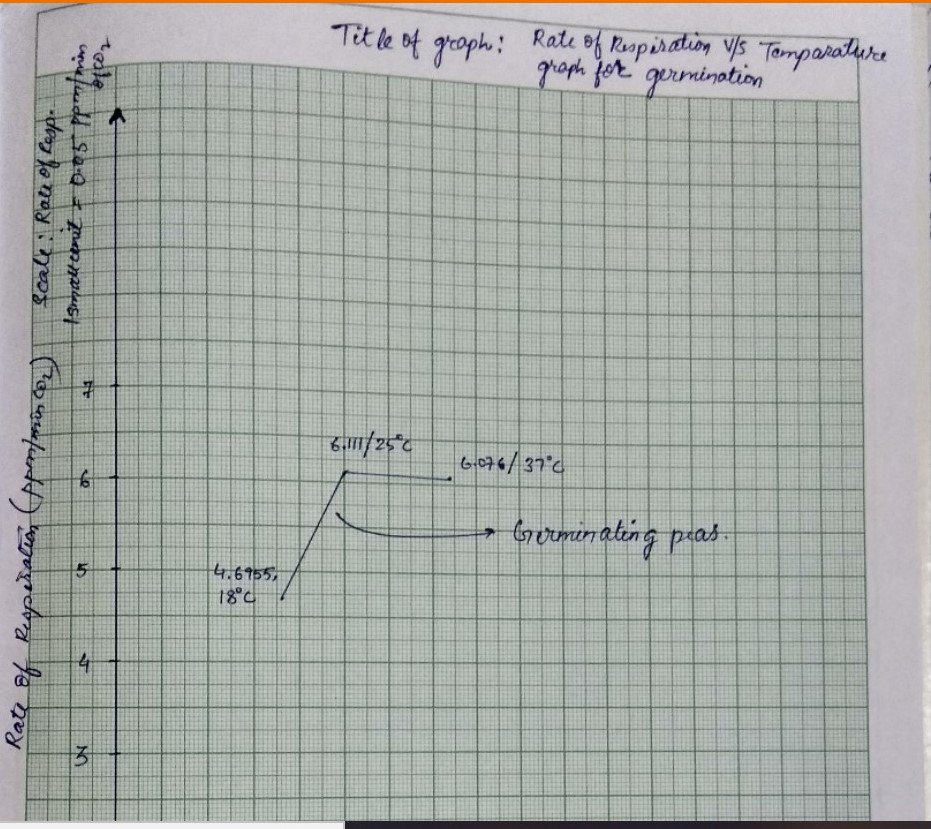 Title of graph: Rate of Respiration V/S Temparature
graph for germination
Scale: Rate of Resp.
1 small unit = 0.05 ppm/min
of CO₂
Rate of Respiration (ppm/min CO₂)
7
6.111/25°C
6.076/37°C
6
Germinating peas.
5
4.6955,
18°C
4
3